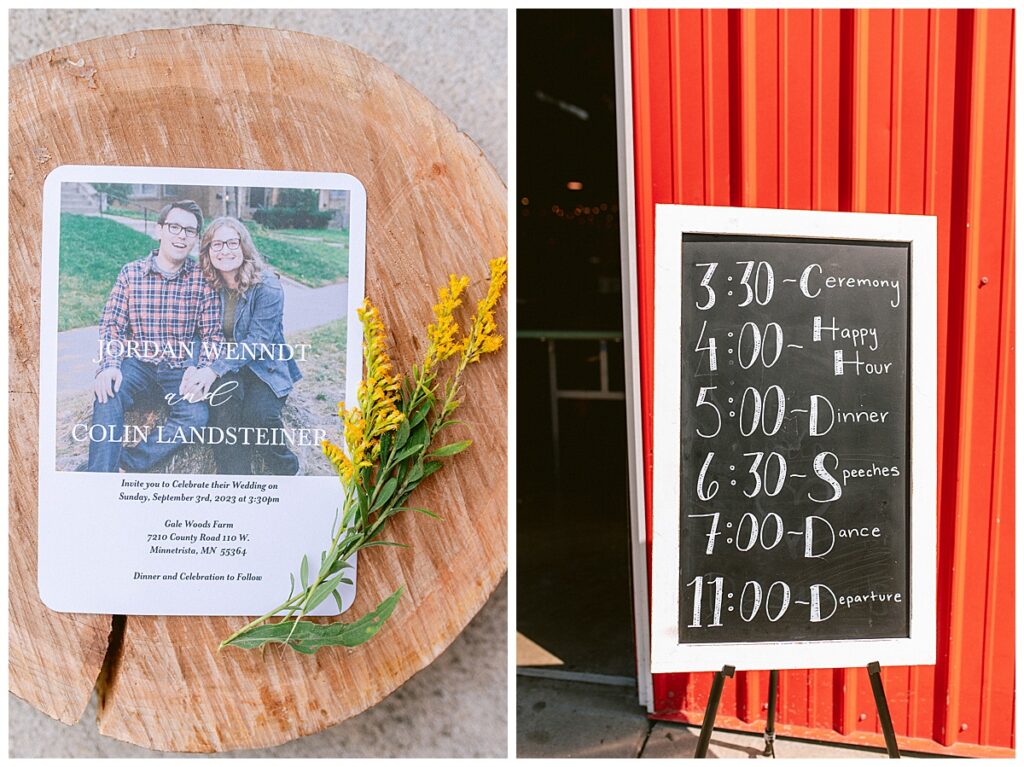 JORDAN WENNDT
and
COLIN LANDSTEINER
Invite you to Celebrate their Wedding on
Sunday, September 3rd, 2023 at 3:30pm
Gale Woods Farm
7210 County Road 110 W.
Minnetrista, MN 55364
Dinner and Celebration to Follow
3:30~Ceremony
4:00~Happy
Hour
5:00~Dinner
6:30~Speeches
7:00~Dance
11:00~Departure